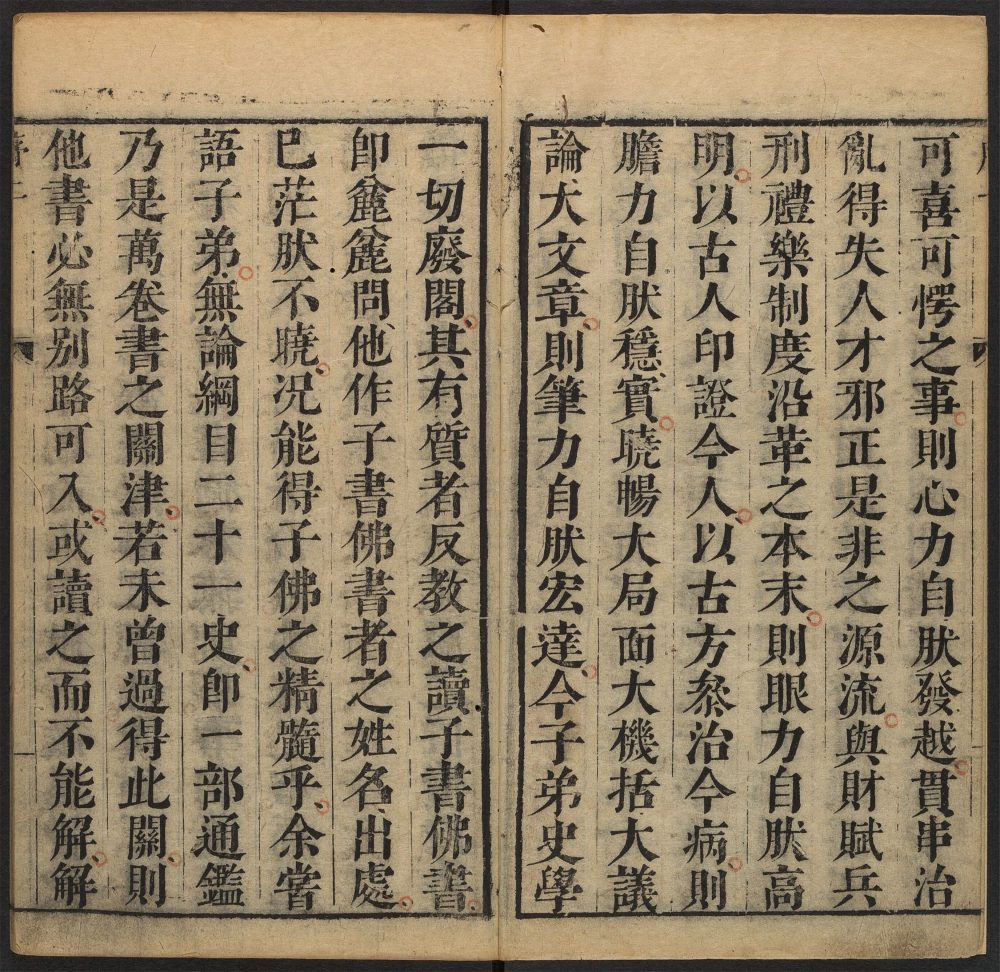 可喜可愕之事則心力自肰發越貫串治
亂得失人才邪正是非之源流與財賦兵
刑禮樂制度沿革之本末則眼力自肰高
明以古人印證今人以古方叅治今病則
膽力自肰穩實曉暢大局面大機括大議
論大文章則筆力自肰宏達今子弟史學
一切廢閣其有質者反教之讀子書佛書
卽麄麄問他作子書佛書者之姓名出處
已茫肰不曉况能得子佛之精髓乎余嘗
語子弟無論綱目二十一史卽一部通鑑
乃是萬卷書之關津若未曾過得此關則
他書必無別路可入或讀之而不能解解